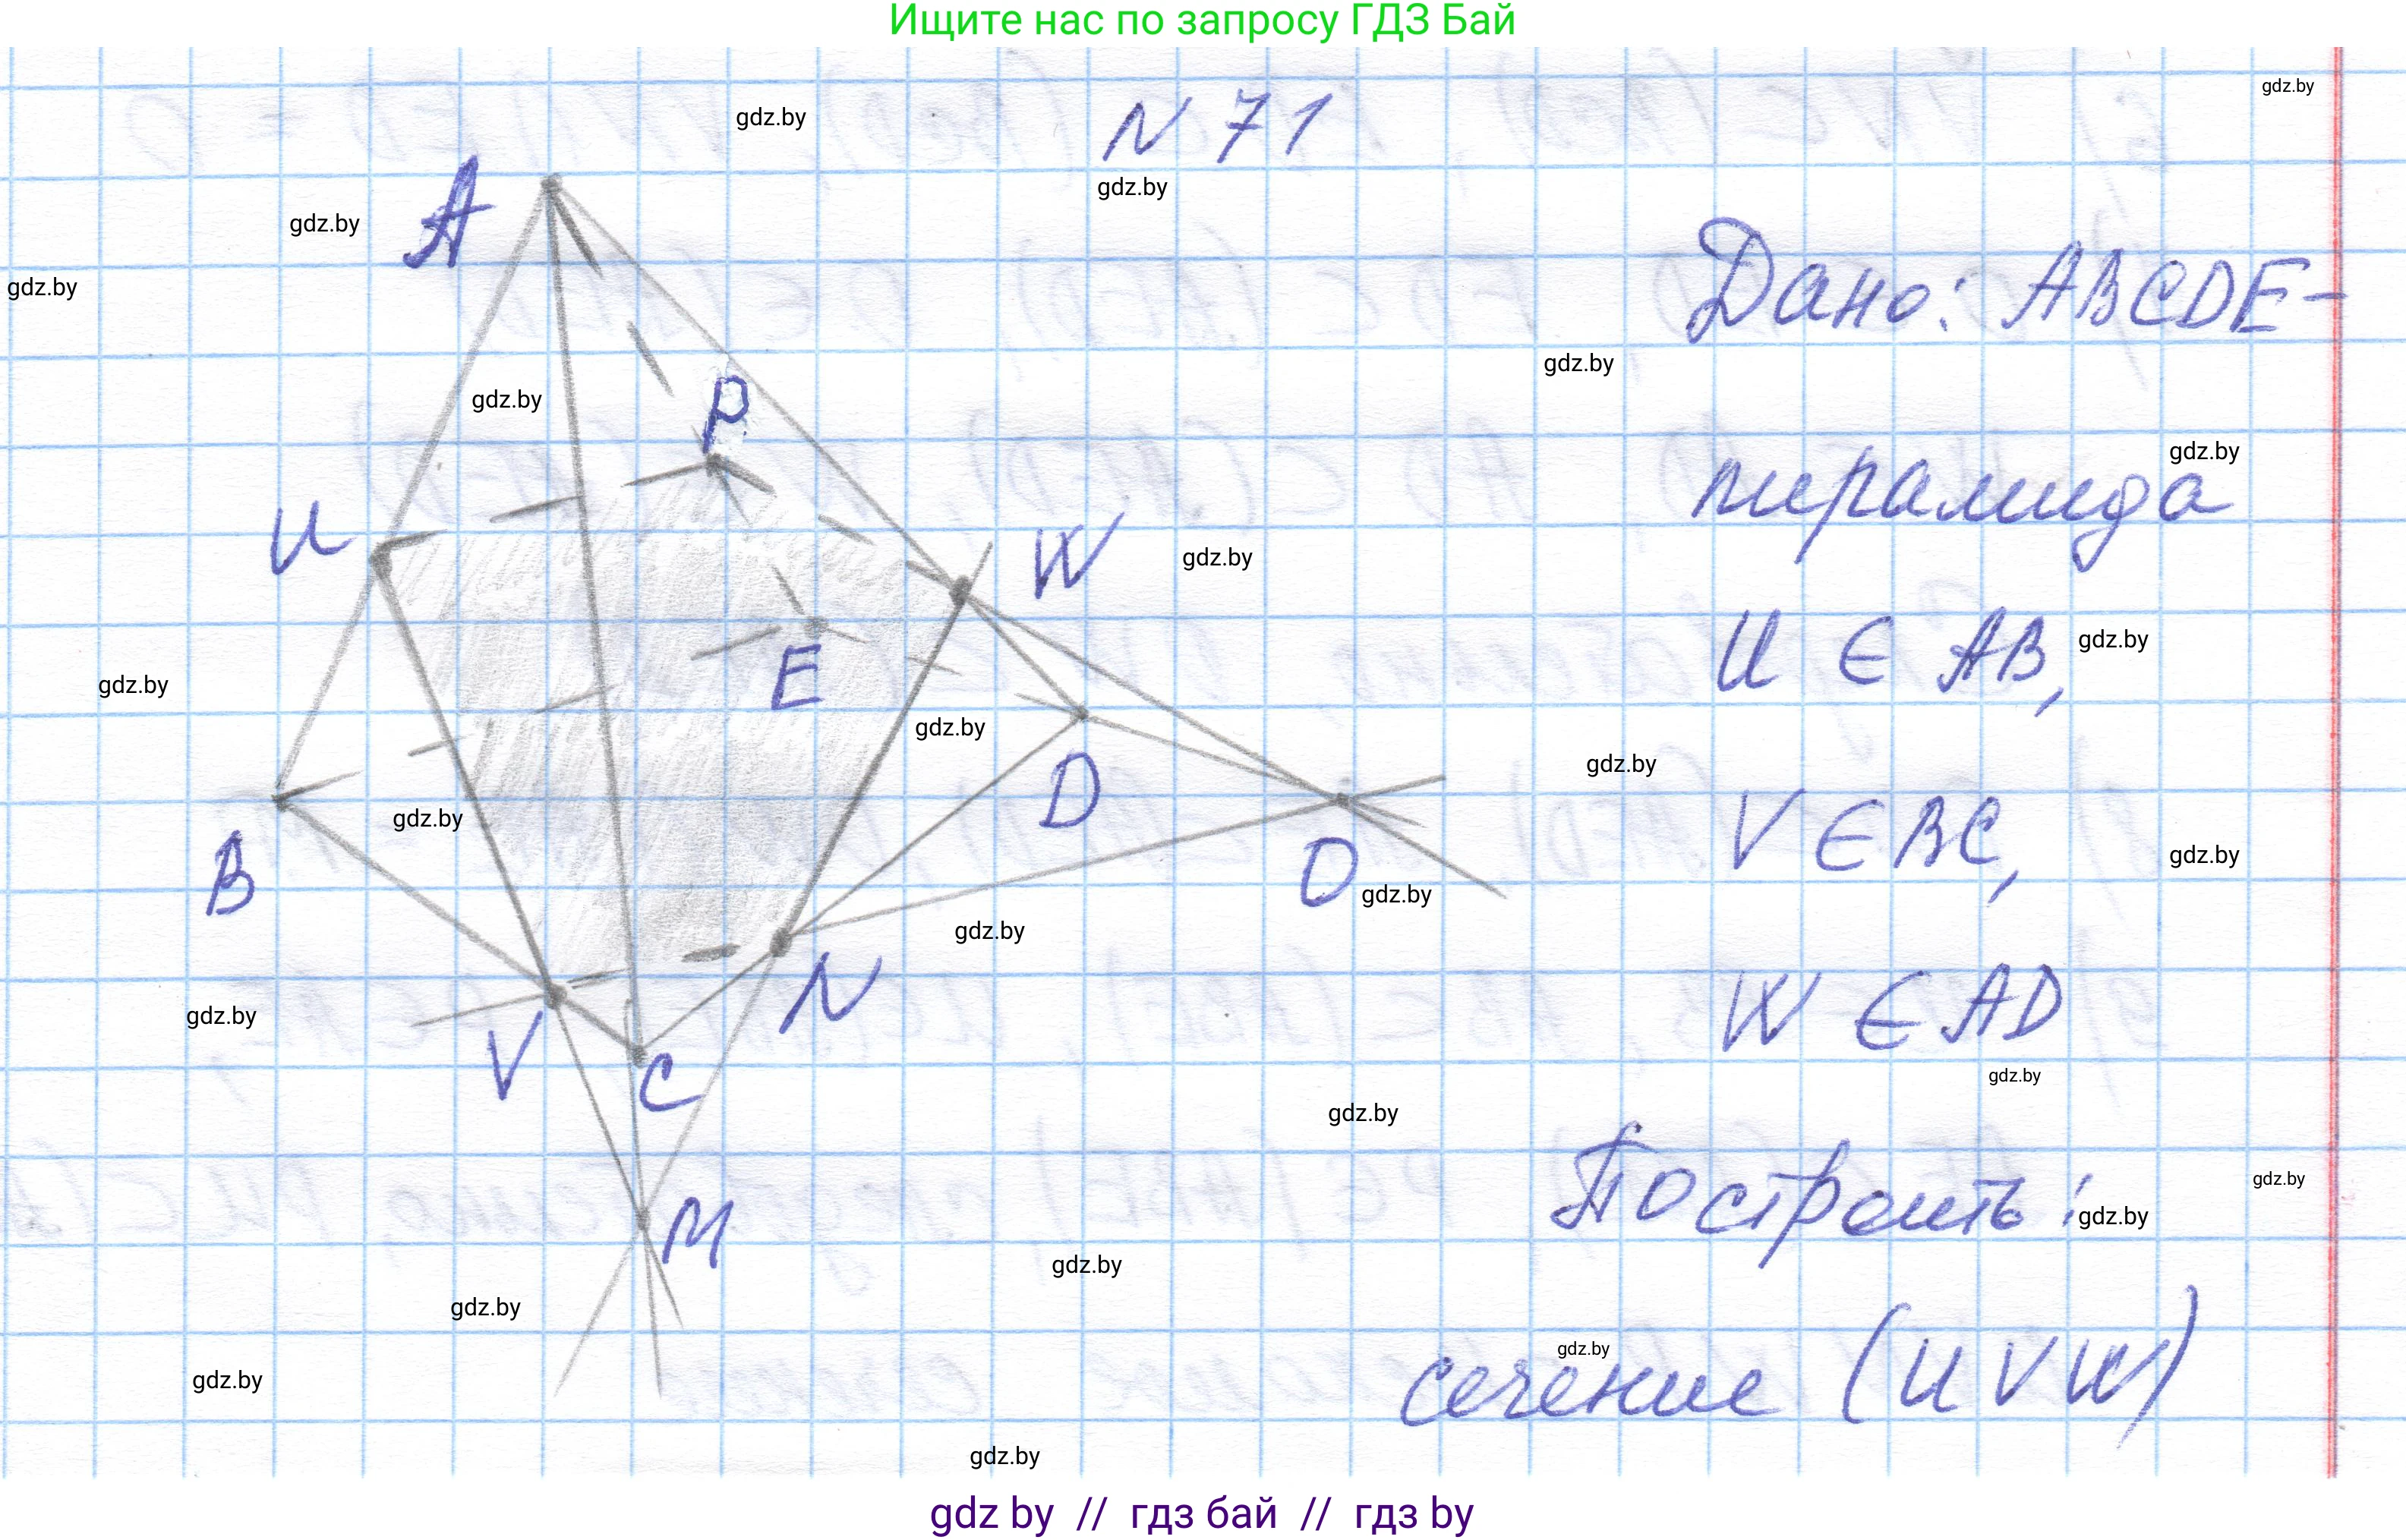 Ищите нас по запросу ГДЗ Бай
gdz.by
N 71
gdz.by
gdz.by
A
gdz.by
gdz.by
Дано: ABCDE-
gdz.by
P
gdz.by
gdz.by
пирамида
U
W
gdz.by
U ∈ AB,
gdz.by
E
gdz.by
gdz.by
D
gdz.by
gdz.by
V ∈ BC,
gdz.by
B
O
gdz.by
gdz.by
N
W ∈ AD
gdz.by
V
C
gdz.by
gdz.by
gdz.by
Построить:
gdz.by
M
gdz.by
gdz.by
gdz.by
сечение (UVW)
gdz.by
gdz.by
gdz by // гдз бай // гдз by